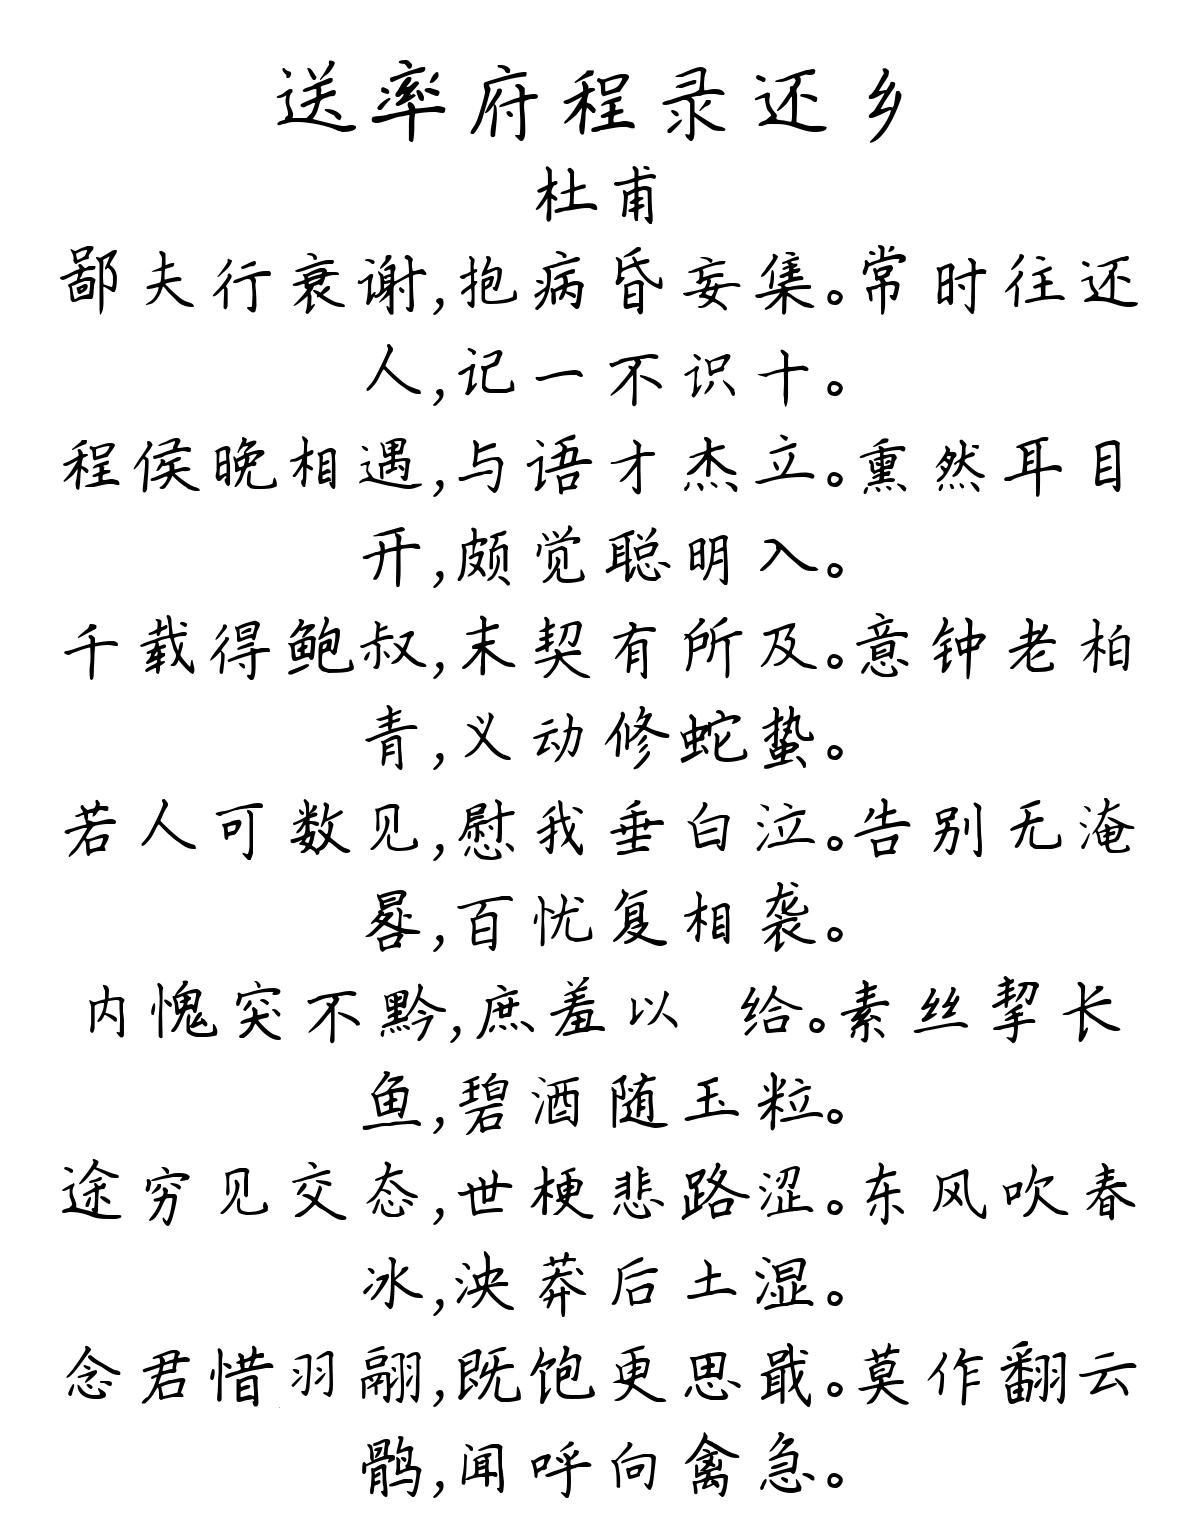 送率府程录还乡
杜甫
鄙夫行衰谢,抱病昏妄集。常时往还
人,记一不识十。
程侯晚相遇,与语才杰立。熏然耳目
开,颇觉聪明入。
千载得鲍叔,末契有所及。意钟老柏
青,义动修蛇蛰。
若人可数见,慰我垂白泣。告别无淹
晷,百忧复相袭。
内愧突不黔,庶羞以 给。素丝挈长
鱼,碧酒随玉粒。
途穷见交态,世梗悲路涩。东风吹春
冰,泱莽后土湿。
念君惜羽翮,既饱更思戢。莫作翻云
鹘,闻呼向禽急。